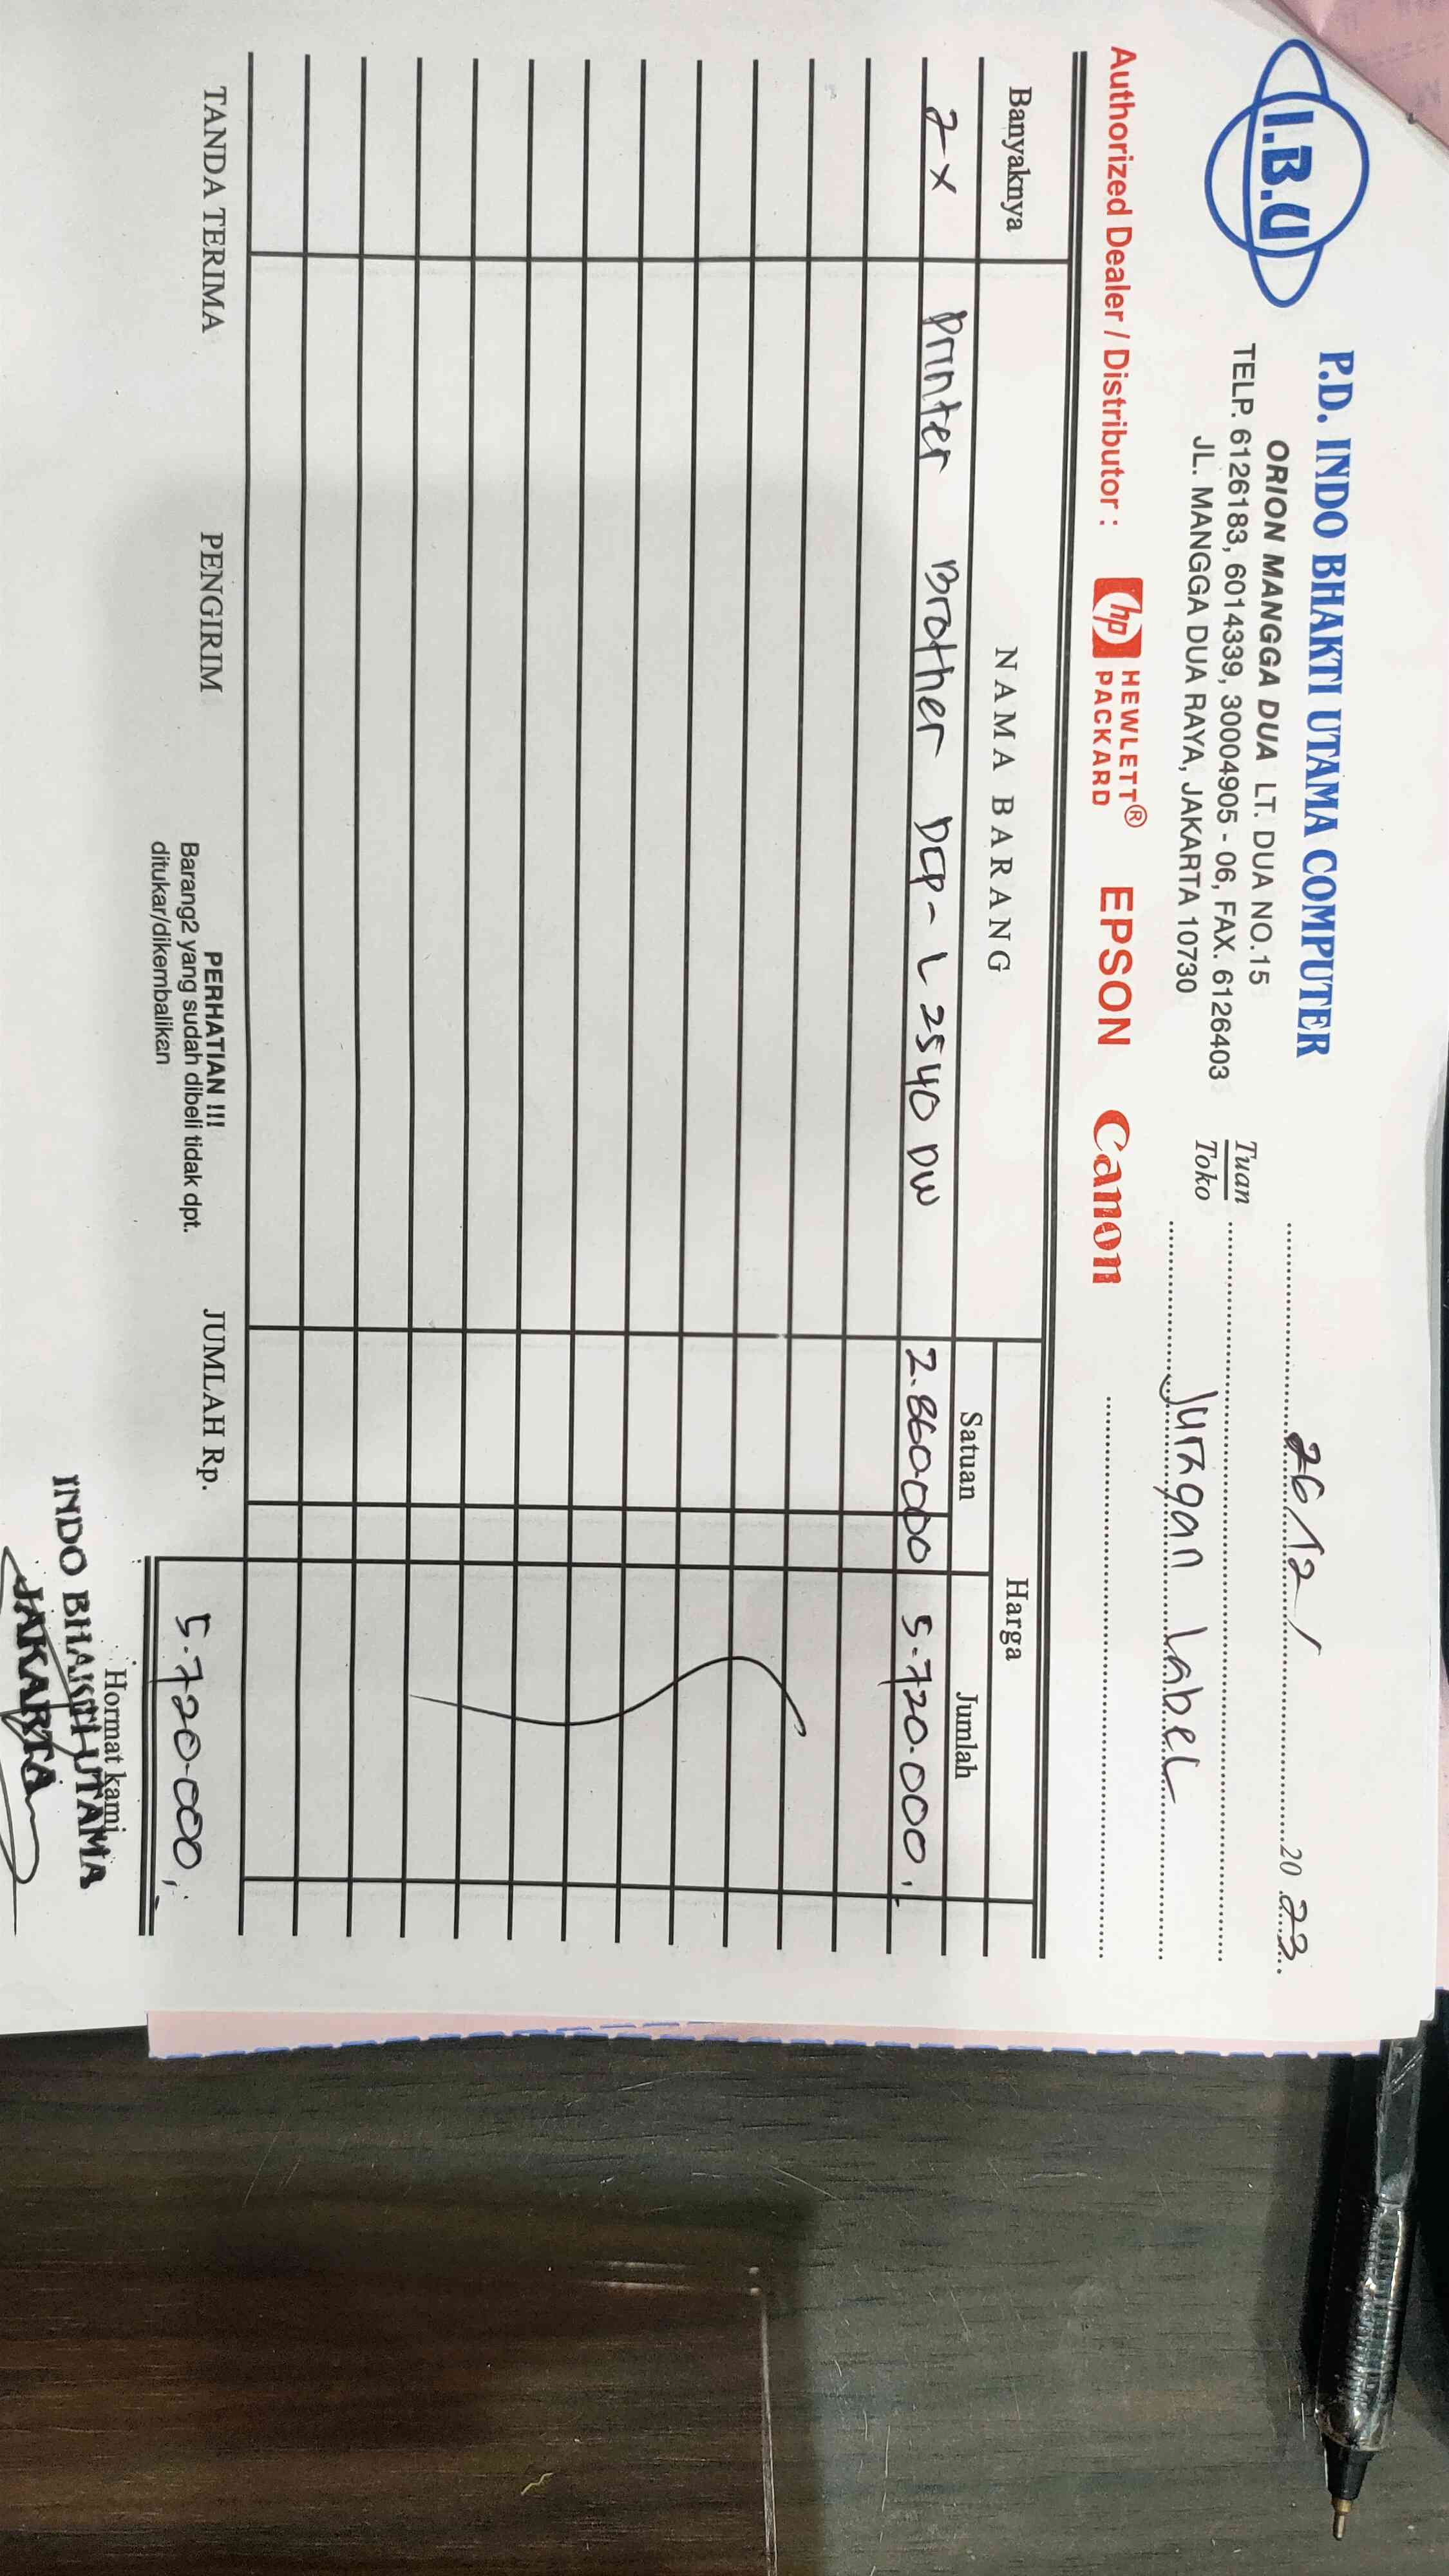 I.B.U
P.D. INDO BHAKTI UTAMA COMPUTER
ORION MANGGA DUA LT. DUA NO.15
TELP. 6126183, 6014339, 30004905 - 06, FAX. 6126403
JL. MANGGA DUA RAYA, JAKARTA 10730
26/12/ 20 23
Tuan
Toko
Juragan Label
Authorized Dealer / Distributor : hp HEWLETT® PACKARD EPSON Canon
Banyaknya NAMA BARANG Harga
Satuan Jumlah
2x Printer Brother DCP-L2540DW 2.860.000 5.720.000,-
TANDA TERIMA PENGIRIM JUMLAH Rp. 5.720.000,-
PERHATIAN !!!
Barang2 yang sudah dibeli tidak dpt.
ditukar/dikembalikan
Hormat kami
INDO BHAKTI UTAMA
JAKARTA